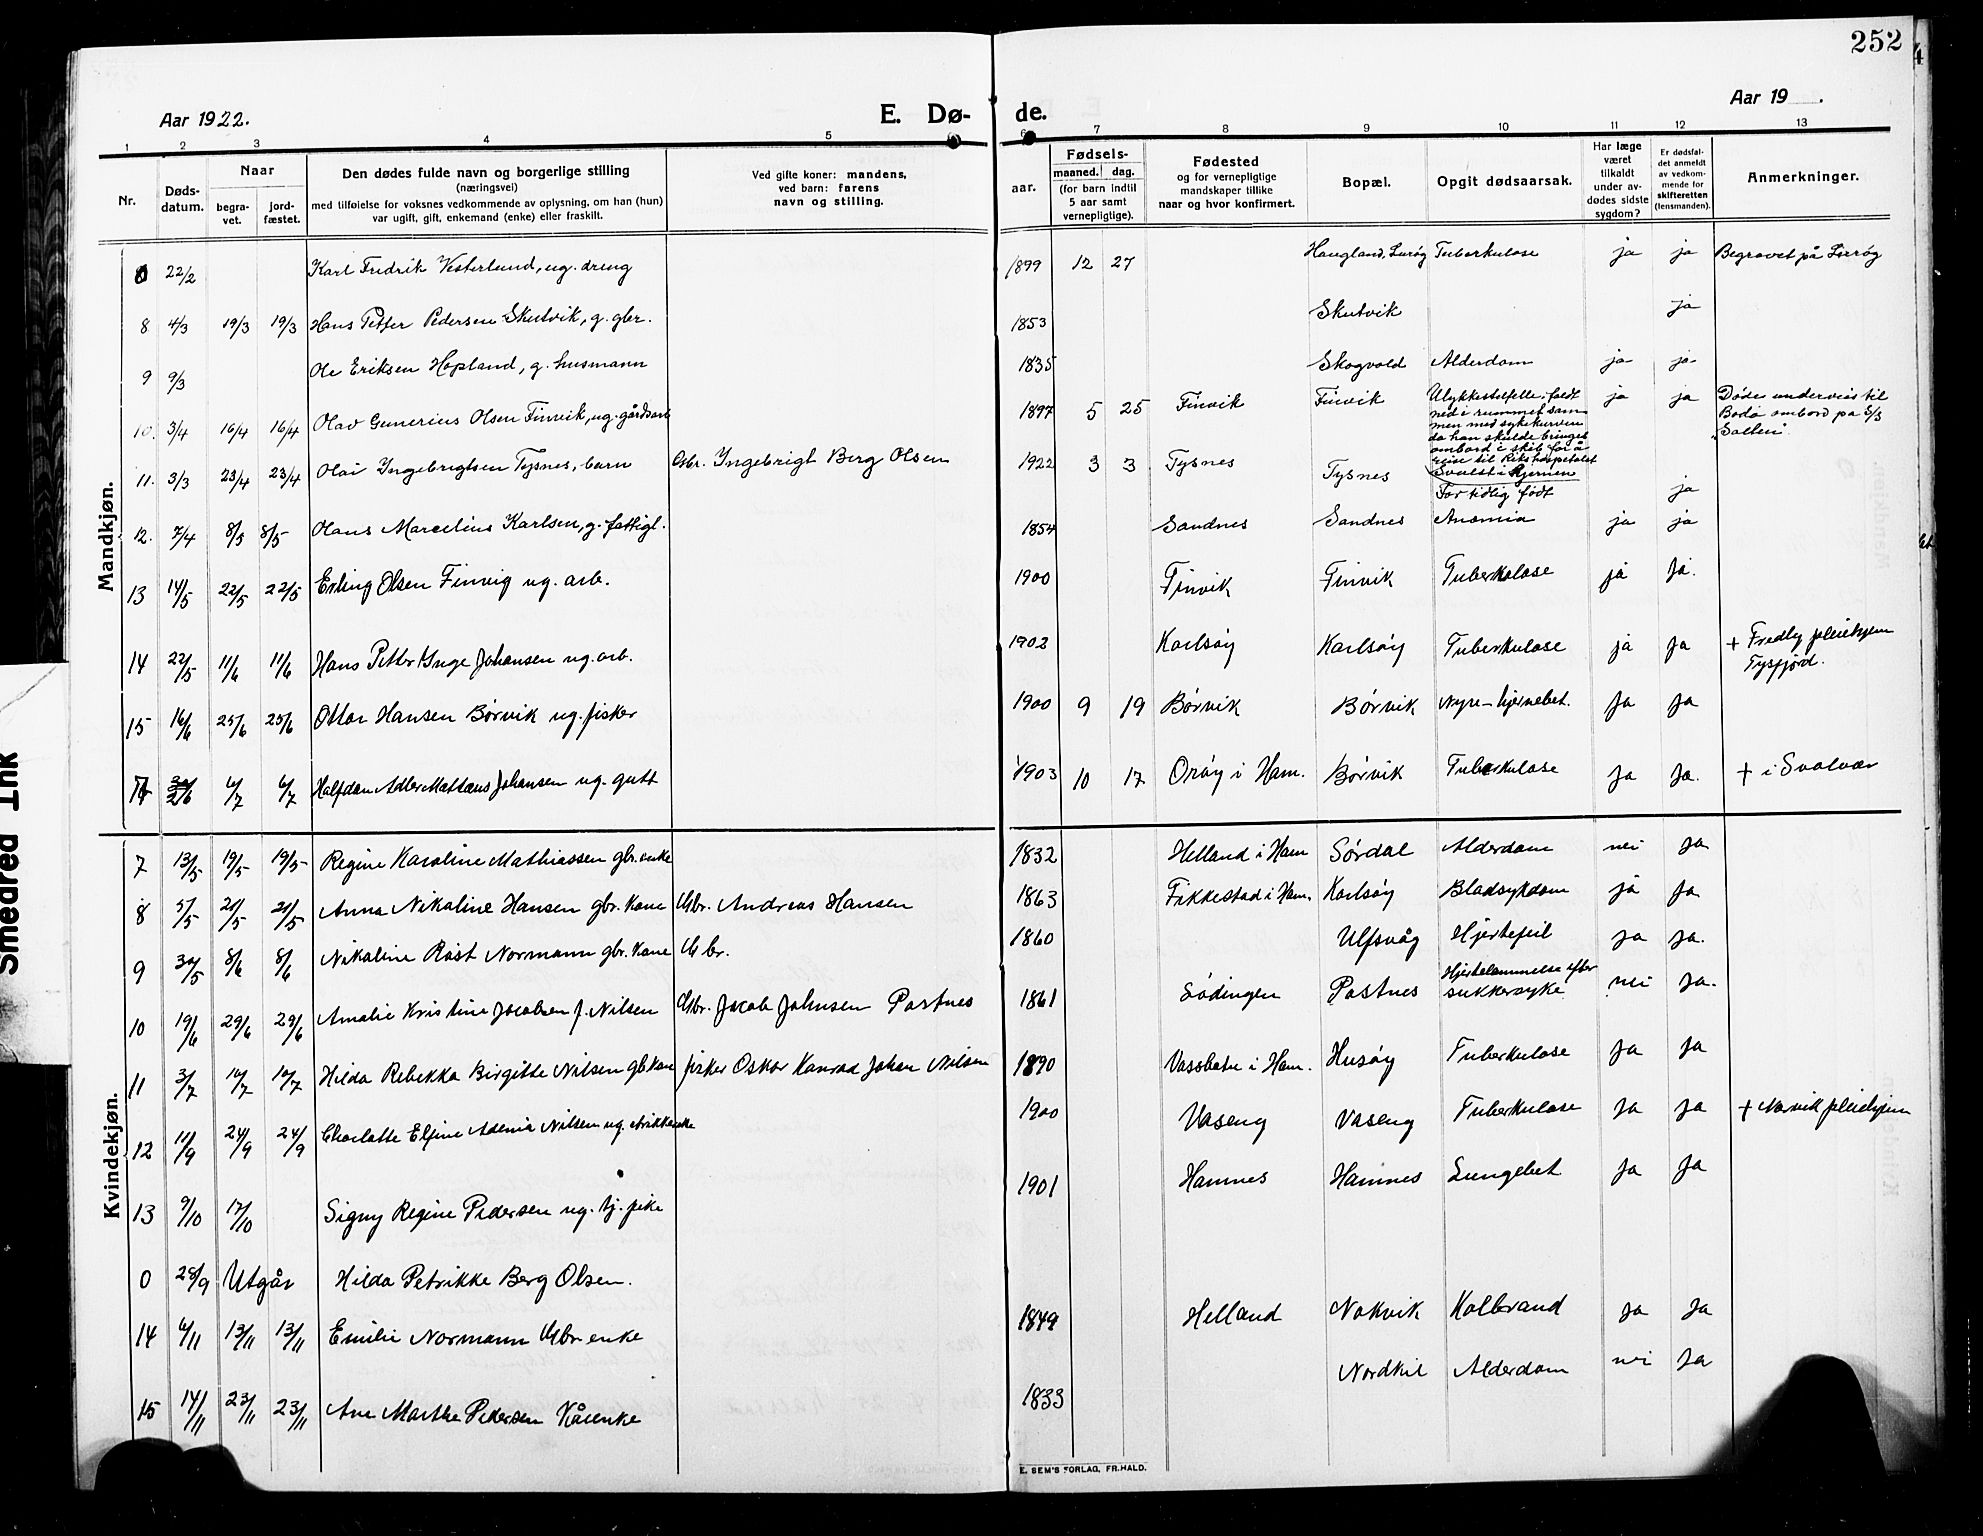 252
Aar 1922.
E. Dø-
de.
Aar 19 .
1 2 3 4 5 6 6 7 8 9 10 11 12 13
Nr.
Døds-
datum.
Naar
begra-
vet.
jord-
fæstet.
Den dødes fulde navn og borgerlige stilling
(næringsvei)
med tilføielse for voksnes vedkommende av oplysning, om han (hun)
var ugift, gift, enkemand (enke) eller fraskilt.
Ved gifte koner: mandens,
ved barn: farens
navn og stilling.
aar.
Fødsels-
maaned. dag.
(for barn indtil
5 aar samt
vernepligtige).
Fødested
og for vernepligtige
mandskaper tillike
naar og hvor konfirmert.
Bopæl.
Opgit dødsaarsak.
Har læge
været
tilkaldt
under av-
dødes sidste
sygdom?
Er dødsfal-
det anmeldt
av vedkom-
mende for
skifteretten
(lensmanden).
Anmerkninger.
Mandkjøn.
22/2 Karl Fredrik Vesterlund, ug. dreng 1899 12 27 Haugland, Lurøy Tuberkulose ja ja Begravet på Lurøy
8 4/3 19/3 19/3 Hans Petter Pedersen Skutvik, g. gbr. 1853 Skutvik ja
9 9/3 Ole Eriksen Hopland, g. husmann 1835 Skogvold Alderdom ja ja
10. 3/4 16/4 16/4 Olav Gunerius Olsen Finvik, ug. gårdsarb 1897 5 25 Finvik Finvik Ulykkestilfelle, faldt
ned i rummet sam-
men med sykekurven
da han skulde bringes
ombord i skib for å
reise til Rikshospitalet
Svulst i hjernen ja ja Døde underveis til
Bodø ombord på S/S
"Salten".
11. 3/3 23/4 23/4 Olai Ingebrigtsen Tysnes, barn Gbr. Ingebrigt Berg Olsen 1922 3 3 Tysnes Tysnes For tidlig født ja
12. 7/4 8/5 8/5 Hans Marcelius Karlsen, g. fattigl. 1854 Sandnes Sandnes Anæmia ja ja
13 14/5 22/5 22/5 Erling Olsen Finvig ug. arb. 1900 Finvik Finvik Tuberkulose ja ja.
14 22/5 11/6 11/6 Hans Petter Inge Johansen ug. arb. 1902 Karlsøy Karlsøy Tuberkulose ja ja + Fredly pleiehjem
Tysfjord.
15 16/6 25/6 25/6 Ottar Hansen Børvik ug. fisker 1900 9 19 Børvik Børvik Nyre-hjernebet. ja ja
6/7 6/7 Halfdan Adler Mattæus Johansen ug. gutt 1903 10 17 Orøy i Ham. Børvik Tuberkulose ja ja. + i Svolvær
Kvindekjøn.
7 13/5 19/5 19/5 Regine Karoline Mathiassen gbr. enke 1832 Helland i Ham Sørdal Alderdom nei ja
8 5/5 21/5 21/5 Anna Nikoline Hansen gbr. kone Gbr. Andreas Hansen 1863 Fikkestad i Ham. Karlsøy Blodsykdom ja ja
9 30/5 8/6 8/6 Nikoline Røst Normann gbr. kone Gbr. 1860 Ulfsvåg Hjertefeil ja ja.
10 19/6 29/6 29/6 Amalie Kristine Jacobsen f. Nilsen Gbr. Jacob Johnsen Postnes 1861 Lødingen Postnes Hjertelammelse efter
sukkersyke nei ja.
11 3/7 10/7 10/7 Hilda Rebekka Birgitte Nilsen gb. kone fisker Oskar Konrad Johan Nilsen 1890 Vassbotn i Ham. Husøy Tuberkulose ja ja
12 11/9 24/9 24/9 Charlotte Elfine Adenia Nilsen ug. 1900 Vaseng Vaseng Tuberkulose ja ja + Narvik pleiehjem
13 9/10 17/10 Signy Regine Pedersen ug. tj. pike 1901 Hamnes Hamnes Lungebet ja ja
0 28/9 Utgår Hilda Petrikke Berg Olsen.
14 6/11 13/11 13/11 Emilie Normann Gbr enke 1849 Helland Nokvik Kolbrand ja ja
15 14/11 23/11 23/11 Ane Marthe Pedersen Kårenke 1833 Nordkil Alderdom nei ja
E. SEM'S FORLAG, FR.HALD.
Smedred Ink